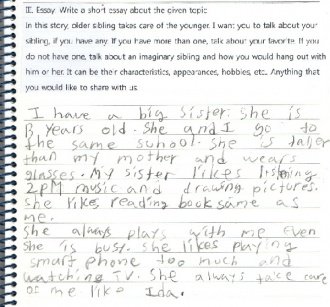 III. Essay. Write a short essay about the given topic
In this story, older sibling takes care of the younger. I want you to talk about your
sibling, if you have any. If you have more than one, talk about your favorite. If you
do not have one, talk about an imaginary sibling and how you would hang out with
him or her. It can be their characteristics, appearances, hobbies, etc. Anything that
you would like to share with us.
I have a big sister. She is
13 years old. She and I go to
the same school. She is taller
than my mother and wears
glasses. My sister likes listening
2PM music and drawing pictures.
She likes reading book same as
me.
She always plays with me even
She is busy. She likes playing
smart phone too much and
watching TV. She always take care
of me like Ida.